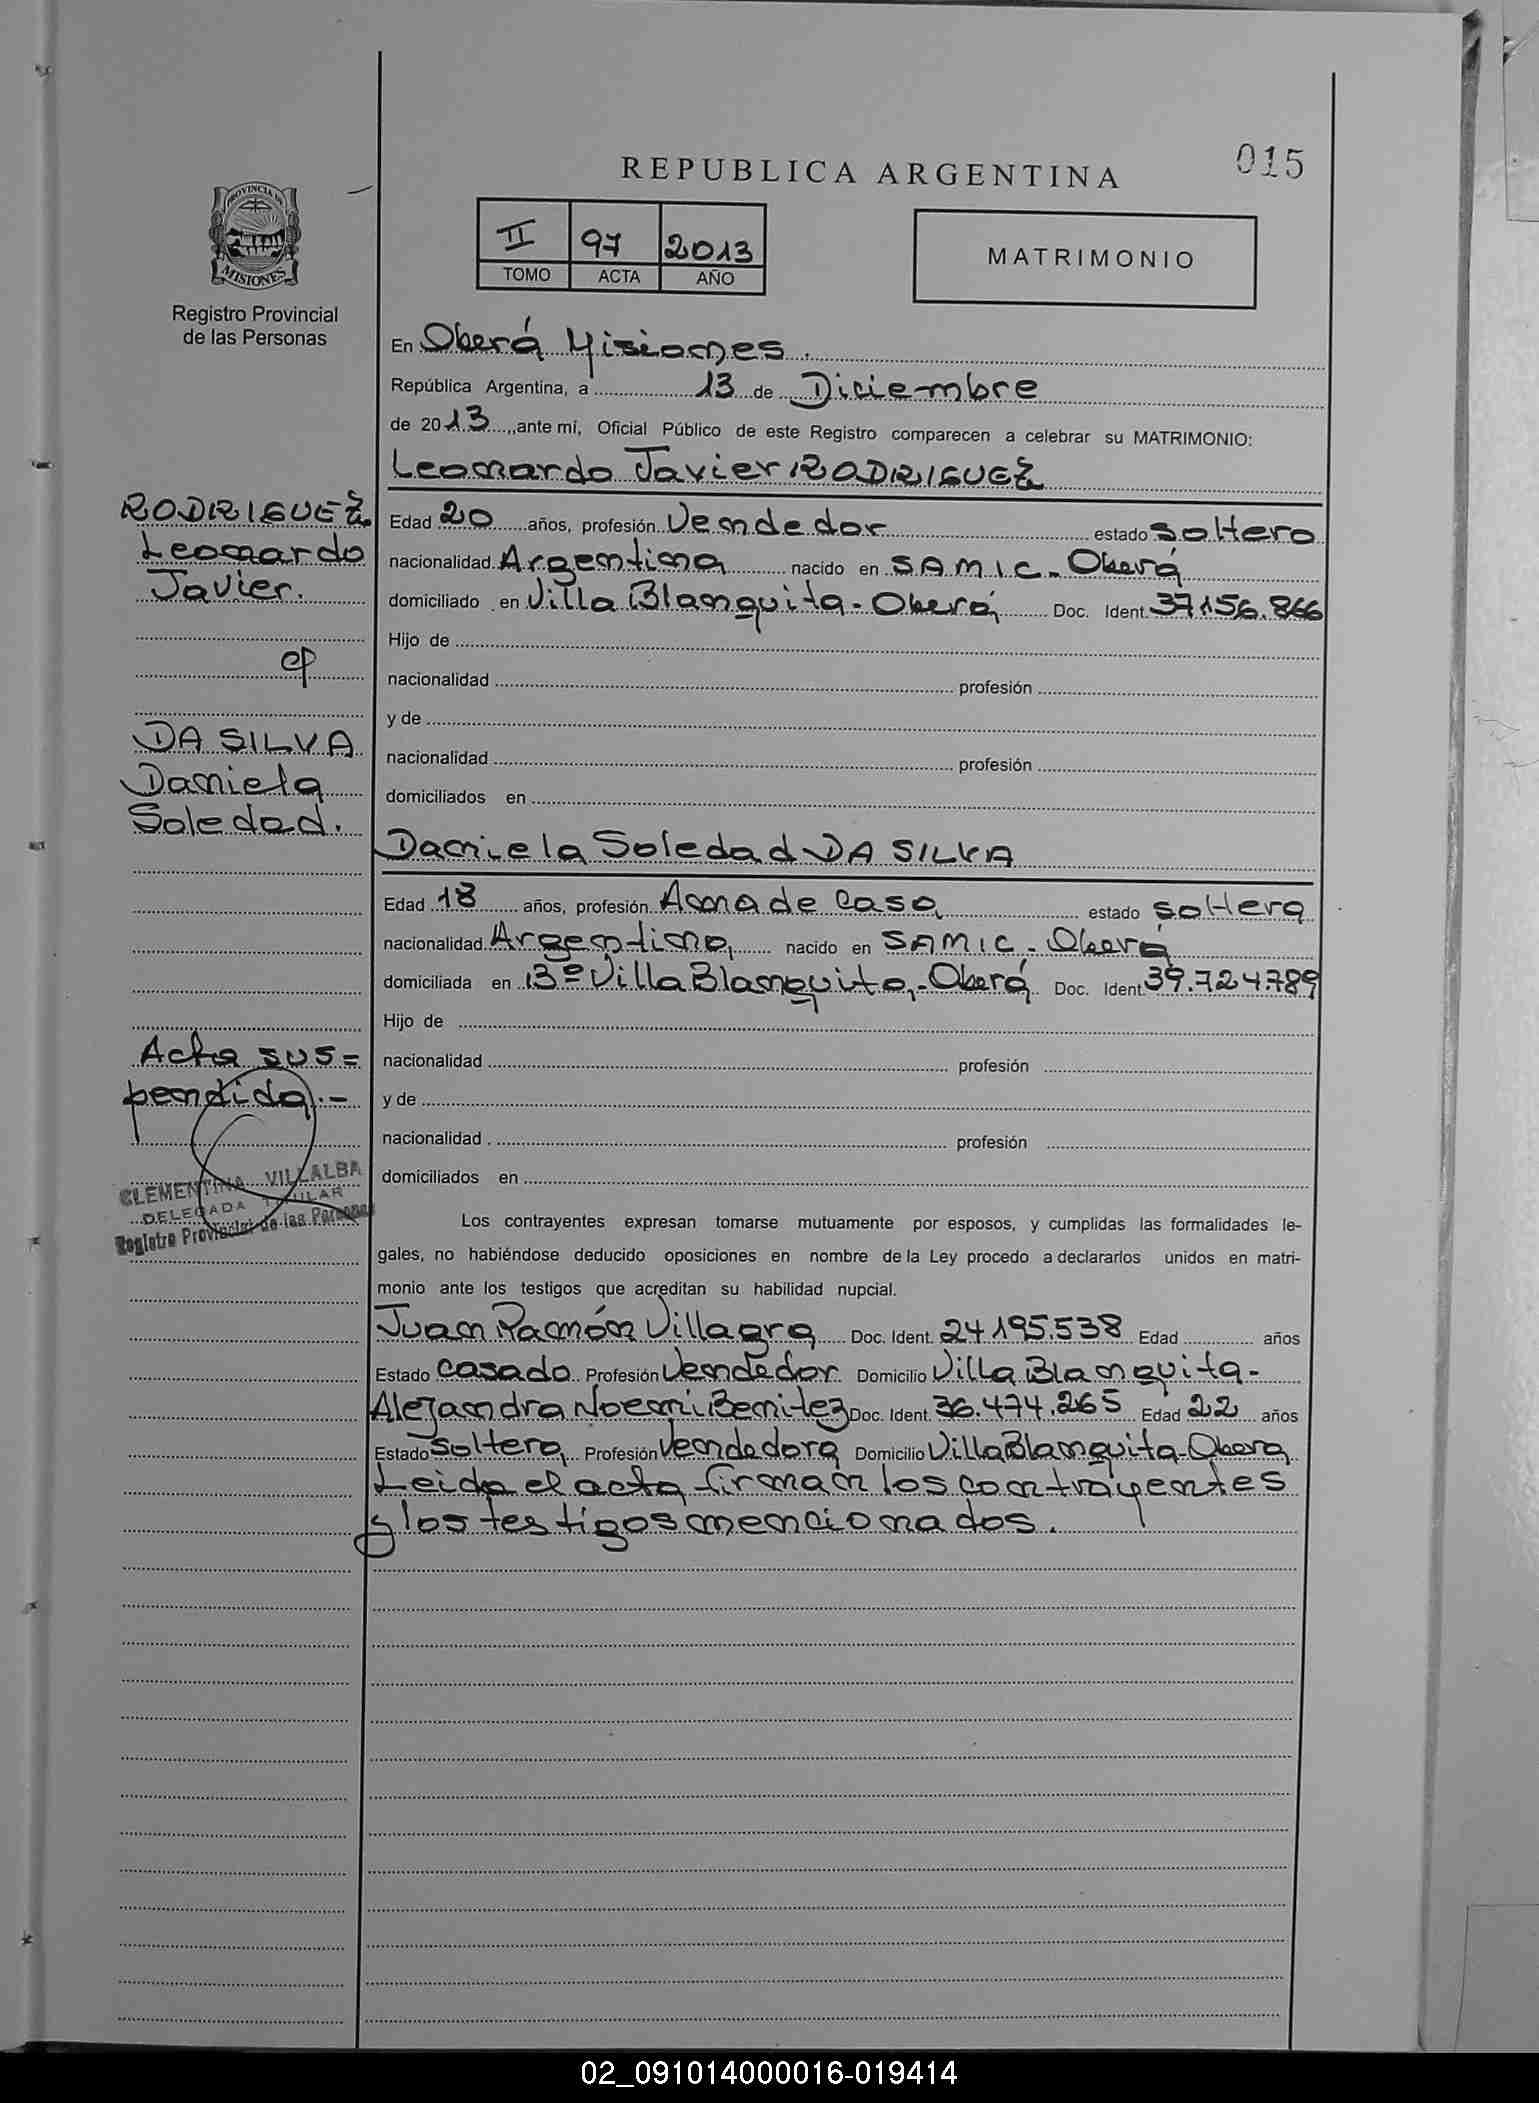 015
REPUBLICA ARGENTINA
PROVINCIA DE
MISIONES
Registro Provincial
de las Personas
II 97 2013
TOMO ACTA AÑO
MATRIMONIO
En Oberá Misiones.
República Argentina, a 13 de Diciembre
de 2013, ante mí, Oficial Público de este Registro comparecen a celebrar su MATRIMONIO:
Leonardo Javier RODRIGUEZ
RODRIGUEZ
Leonardo
Javier.
cp
DA SILVA
Daniela
Soledad.
Edad 20 años, profesión Vendedor estado soltero
nacionalidad Argentina nacido en SAMIC - Oberá
domiciliado en Villa Blanquita - Oberá Doc. Ident. 37156.866
Hijo de
nacionalidad profesión
y de
nacionalidad profesión
domiciliados en
Daniela Soledad DA SILVA
Edad 18 años, profesión Ama de Casa estado soltera
nacionalidad Argentina nacido en SAMIC - Oberá
domiciliada en Bº Villa Blanquita - Oberá Doc. Ident. 39.724.789
Hijo de
nacionalidad profesión
y de
nacionalidad profesión
domiciliados en
Acta sus=
pendida.-
CLEMENTINA VILLALBA
DELEGADA TITULAR
Registro Provincial de las Personas
Los contrayentes expresan tomarse mutuamente por esposos, y cumplidas las formalidades le-
gales, no habiéndose deducido oposiciones en nombre de la Ley procedo a declararlos unidos en matri-
monio ante los testigos que acreditan su habilidad nupcial.
Juan Ramón Villagra Doc. Ident. 24195.538 Edad años
Estado casado Profesión Vendedor Domicilio Villa Blanquita-
Alejandra Noemi Benitez Doc. Ident. 36.474.265 Edad 22 años
Estado soltera Profesión Vendedora Domicilio Villa Blanquita-Obera
Leida el acta firman los contrayentes
y los testigos mencionados.
02_091014000016-019414